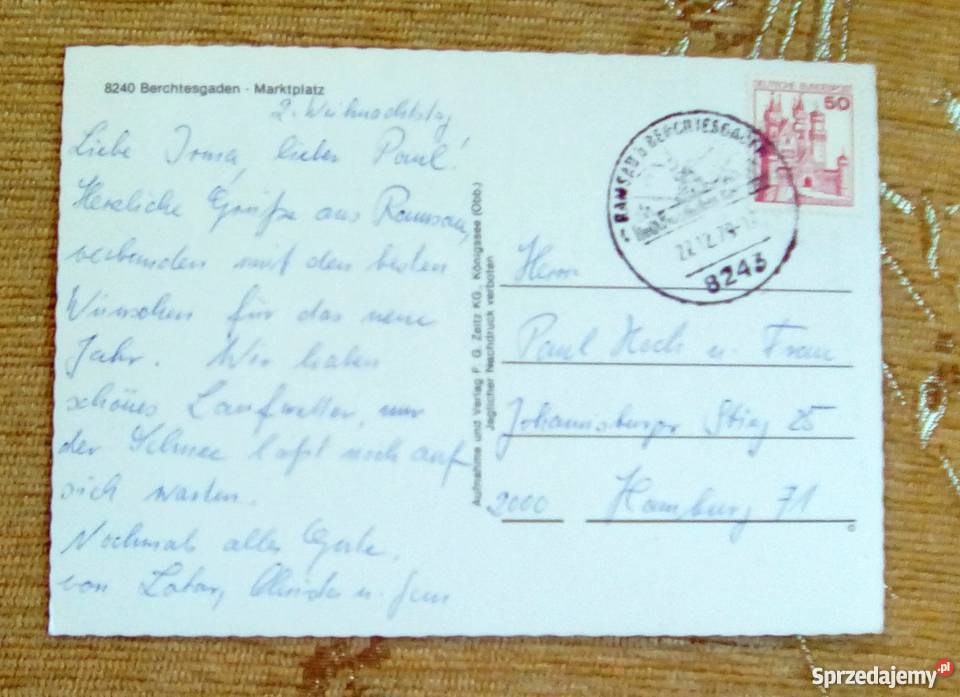 8240 Berchtesgaden · Marktplatz
2. Weihnachtstag
Liebe Irma, lieber Paul!
Herzliche Grüße aus Ramsau,
verbunden mit den besten
Wünschen für das neue
Jahr. Wir haben
schönes Laufwetter, nur
der Schnee läßt noch auf
sich warten.
Nochmals alles Gute,
von Lotar, u.
Aufnahme und Verlag F. G. Zeitz KG., Königssee (Obb.)
Jeglicher Nachdruck verboten
DEUTSCHE BUNDESPOST
50
RAMSAU b BERCHTESGADEN
27.12.79
8243
Herrn
Paul Koch u. Frau
Johannisburger Stieg 25
2000 Hamburg 71
Sprzedajemy.pl